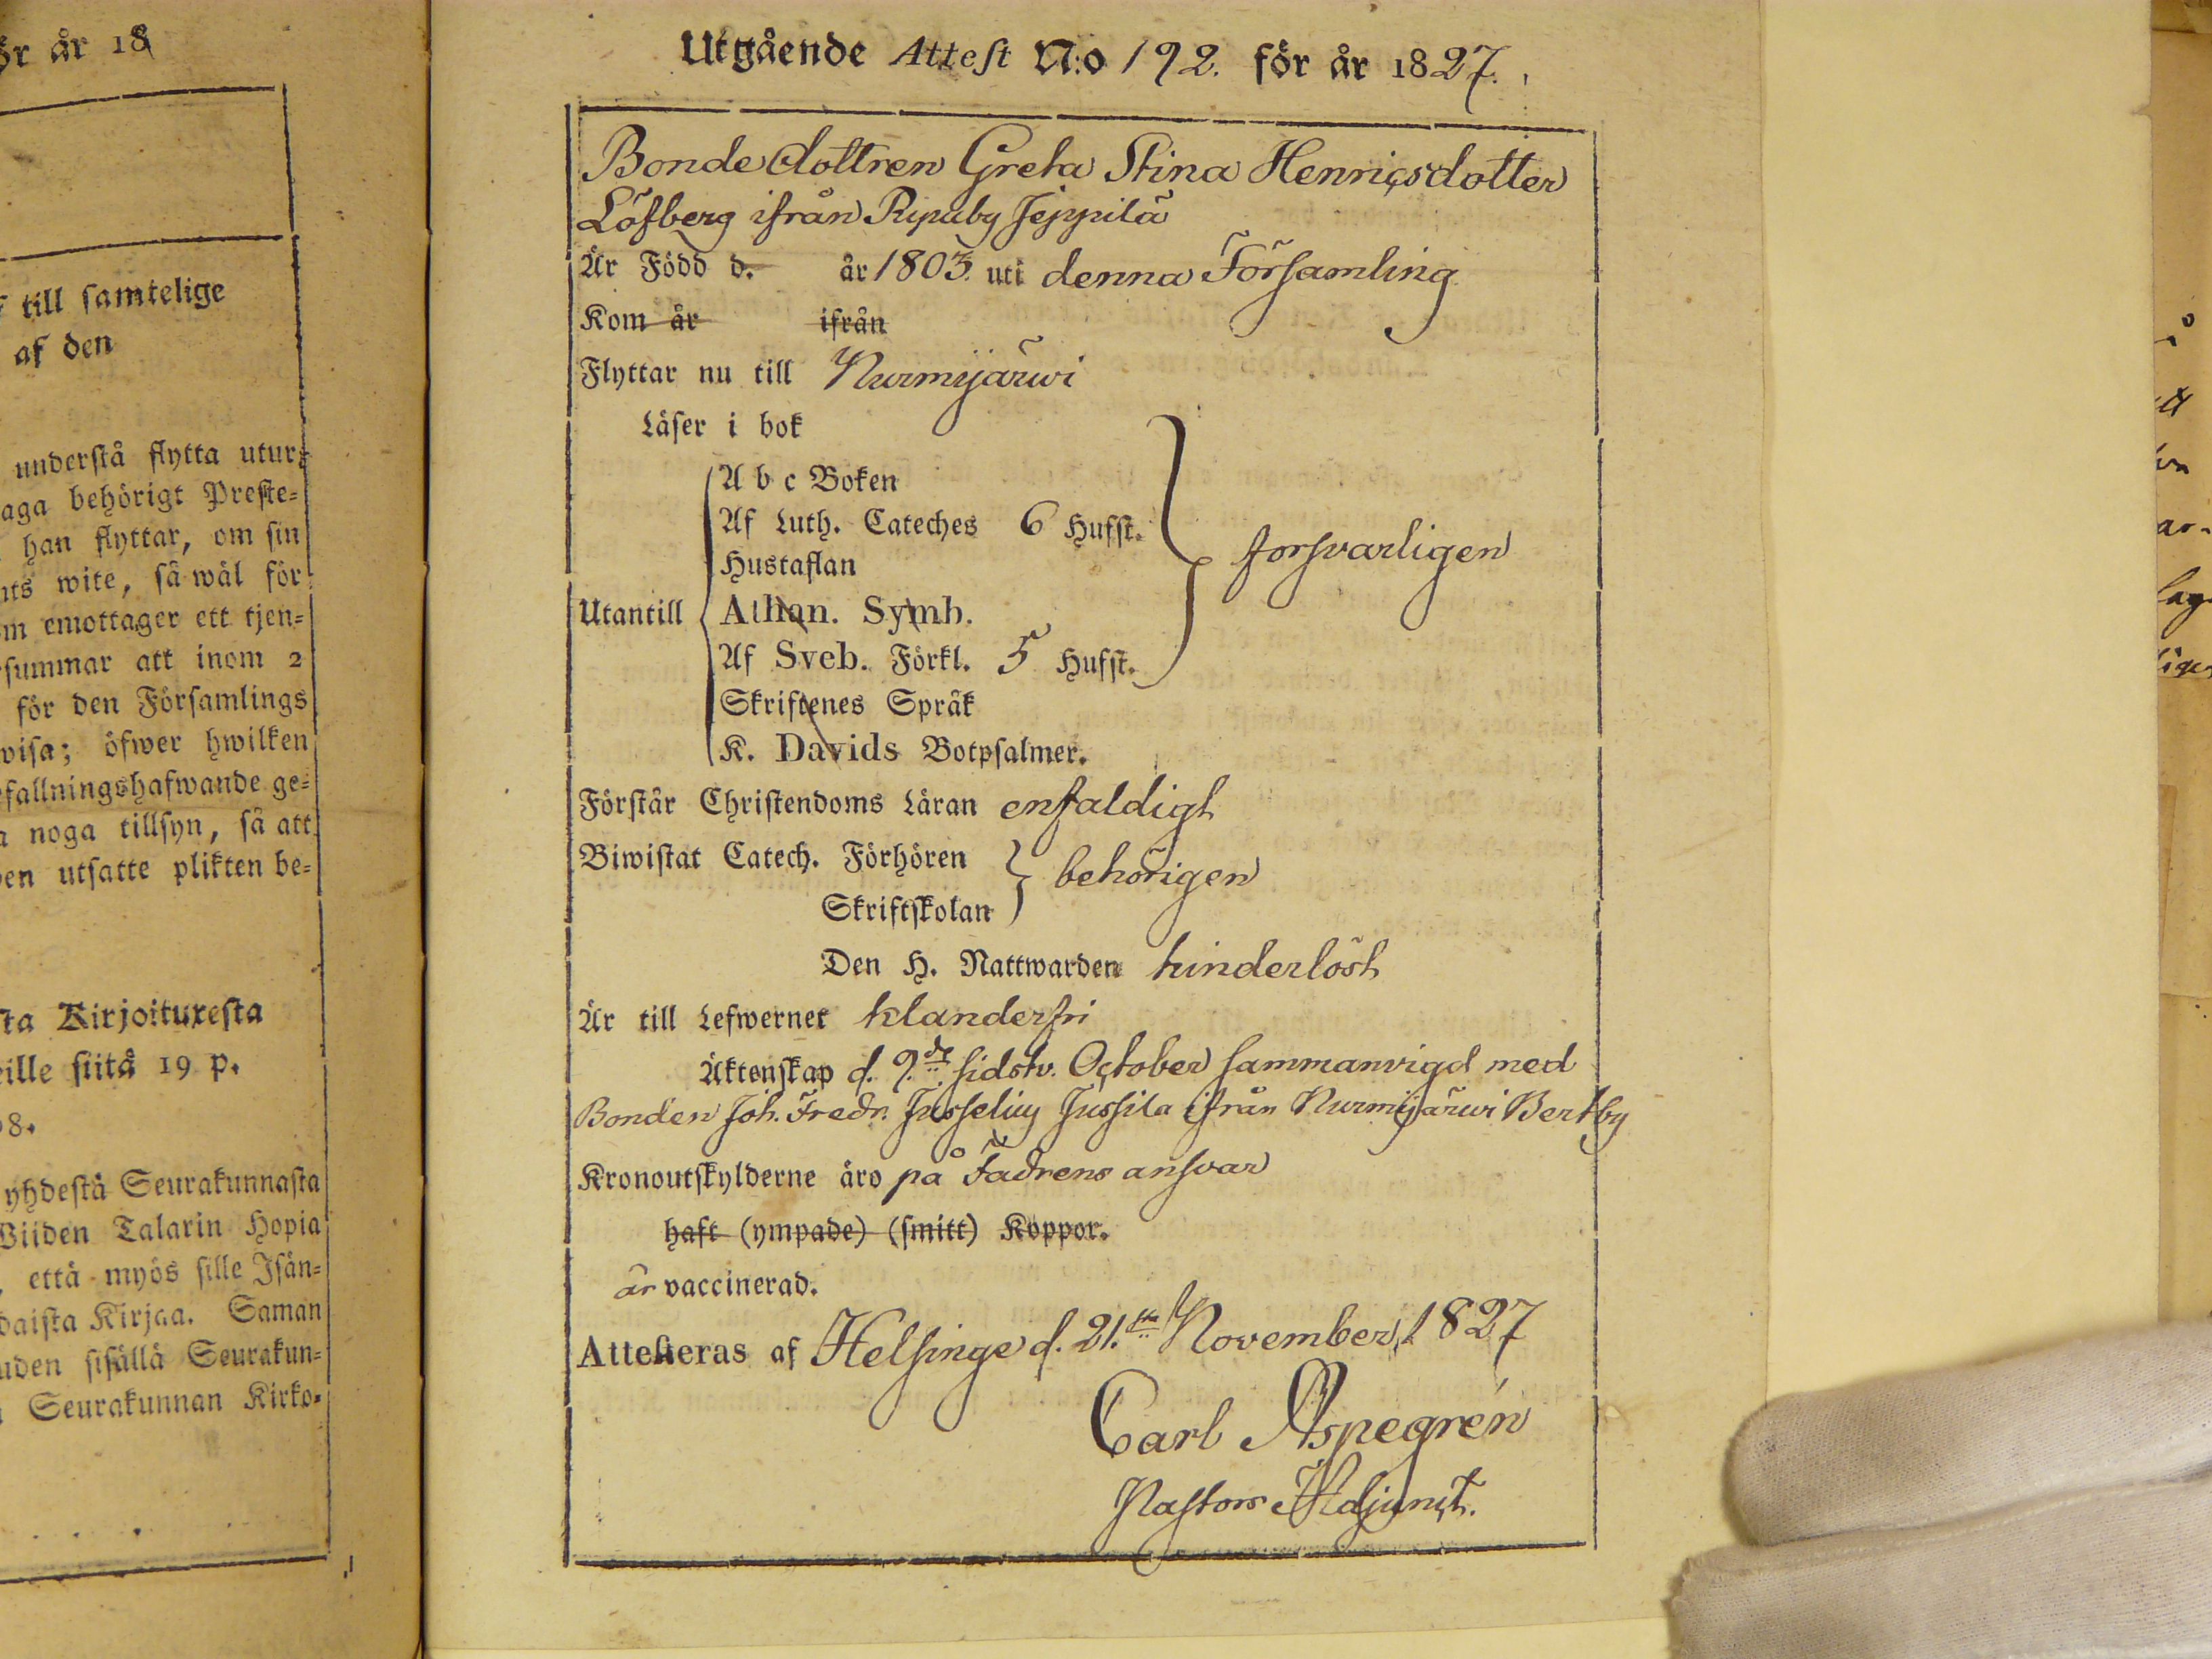 ör år 18
till samtelige
af den
understå flytta utur
aga behörigt Preste=
han flyttar, om sin
wite, så wäl för
emottager ett tjen=
summar att inom 2
för den Församlings
wisa; öfwer hwilken
fallningshafwande ge=
noga tillsyn, så att
utsatte plikten be=
Kirjoituxesta
siitä 19 p.
8.
yhdestä Seurakunnasta
Wiiden Talarin Hopia
että myös sille Isän=
Kirjaa. Saman
sisällä Seurakun=
Seurakunnan Kirko=
Utgående Attest N:o 192. för år 1827.
Bondedottren Greta Stina Henricsdotter
Löfberg ifrån Ripuby Jeppilä
Är Född d. år 1803. uti denna Församling
Kom år ifrån
Flyttar nu till Nurmijärwi
Läser i bok
A b c Boken
Af Luth. Cateches 6 Hufst.
Hustaflan
försvarligen
Utantill Athan. Symb.
Af Sveb. Förkl. 5 Hufst.
Skriftenes Språk
K. Davids Botpsalmer.
Förstår Christendoms Läran enfaldigt
Biwistat Catech. Förhören
Skriftskolan
behörigen
Den H. Nattwarden hinderlöst
Är till Lefwernet klanderfri
Äktenskap d. 9.de sidstv. October sammanvigd med
Bonden Joh. Fredr. Jusselius Jussila ifrån Nurmijärwi Bertby
Kronoutskylderne äro på Fadrens ansvar
haft (ympade) (smitt) Koppor.
är vaccinerad.
Attesteras af Helsinge d. 21.sta November 1827
Carl Aspegrén
Pastors Adjunct.